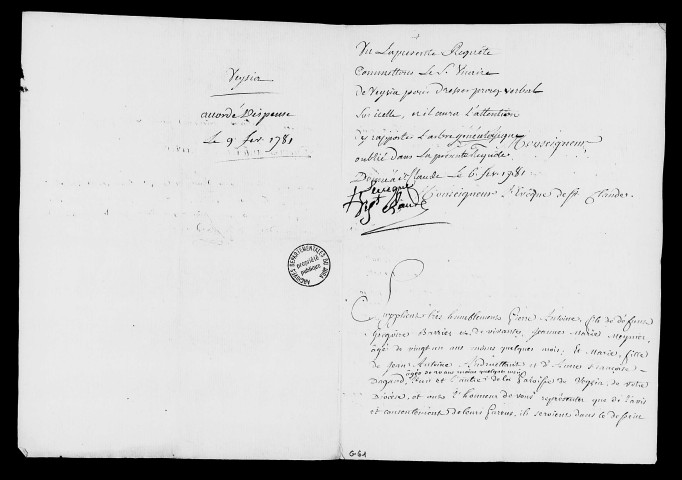 Veysia
accordé Dispense
Le 9 fev. 1781
Vu La presente Requête
Commettons Le Sr. Vicaire
de Veysia pour dresser procez verbal
Sur icelle, et il aura L'attention
d'y rapporter L'arbre généalogique
oublié dans La présente Requête.
Donné à St Claude Le 6. fev. 1781
+ J. evêque
de St Claude
Monseigneur
Monseigneur L'Evêque de St. Claude.
ARCHIVES DEPARTEMENTALES DU JURA
propriété publique
Supplient très humblement Pierre Antoine, fils de défunt
Grégoire Barrier et de vivante Jeanne Marie Meynier,
âgé de vingt un ans moins quelques mois; et Marie, fille
de Jean Antoine et d'Anne Françoise
Dagand, âgée de 20 ans moins quelques mois L'un et L'autre de la Paroisse de Veysia, de votre
Diocèse, et ont L'honneur de vous représenter que de L'avis
et consentement de leurs Parens, ils seroient dans le dessein
G 81